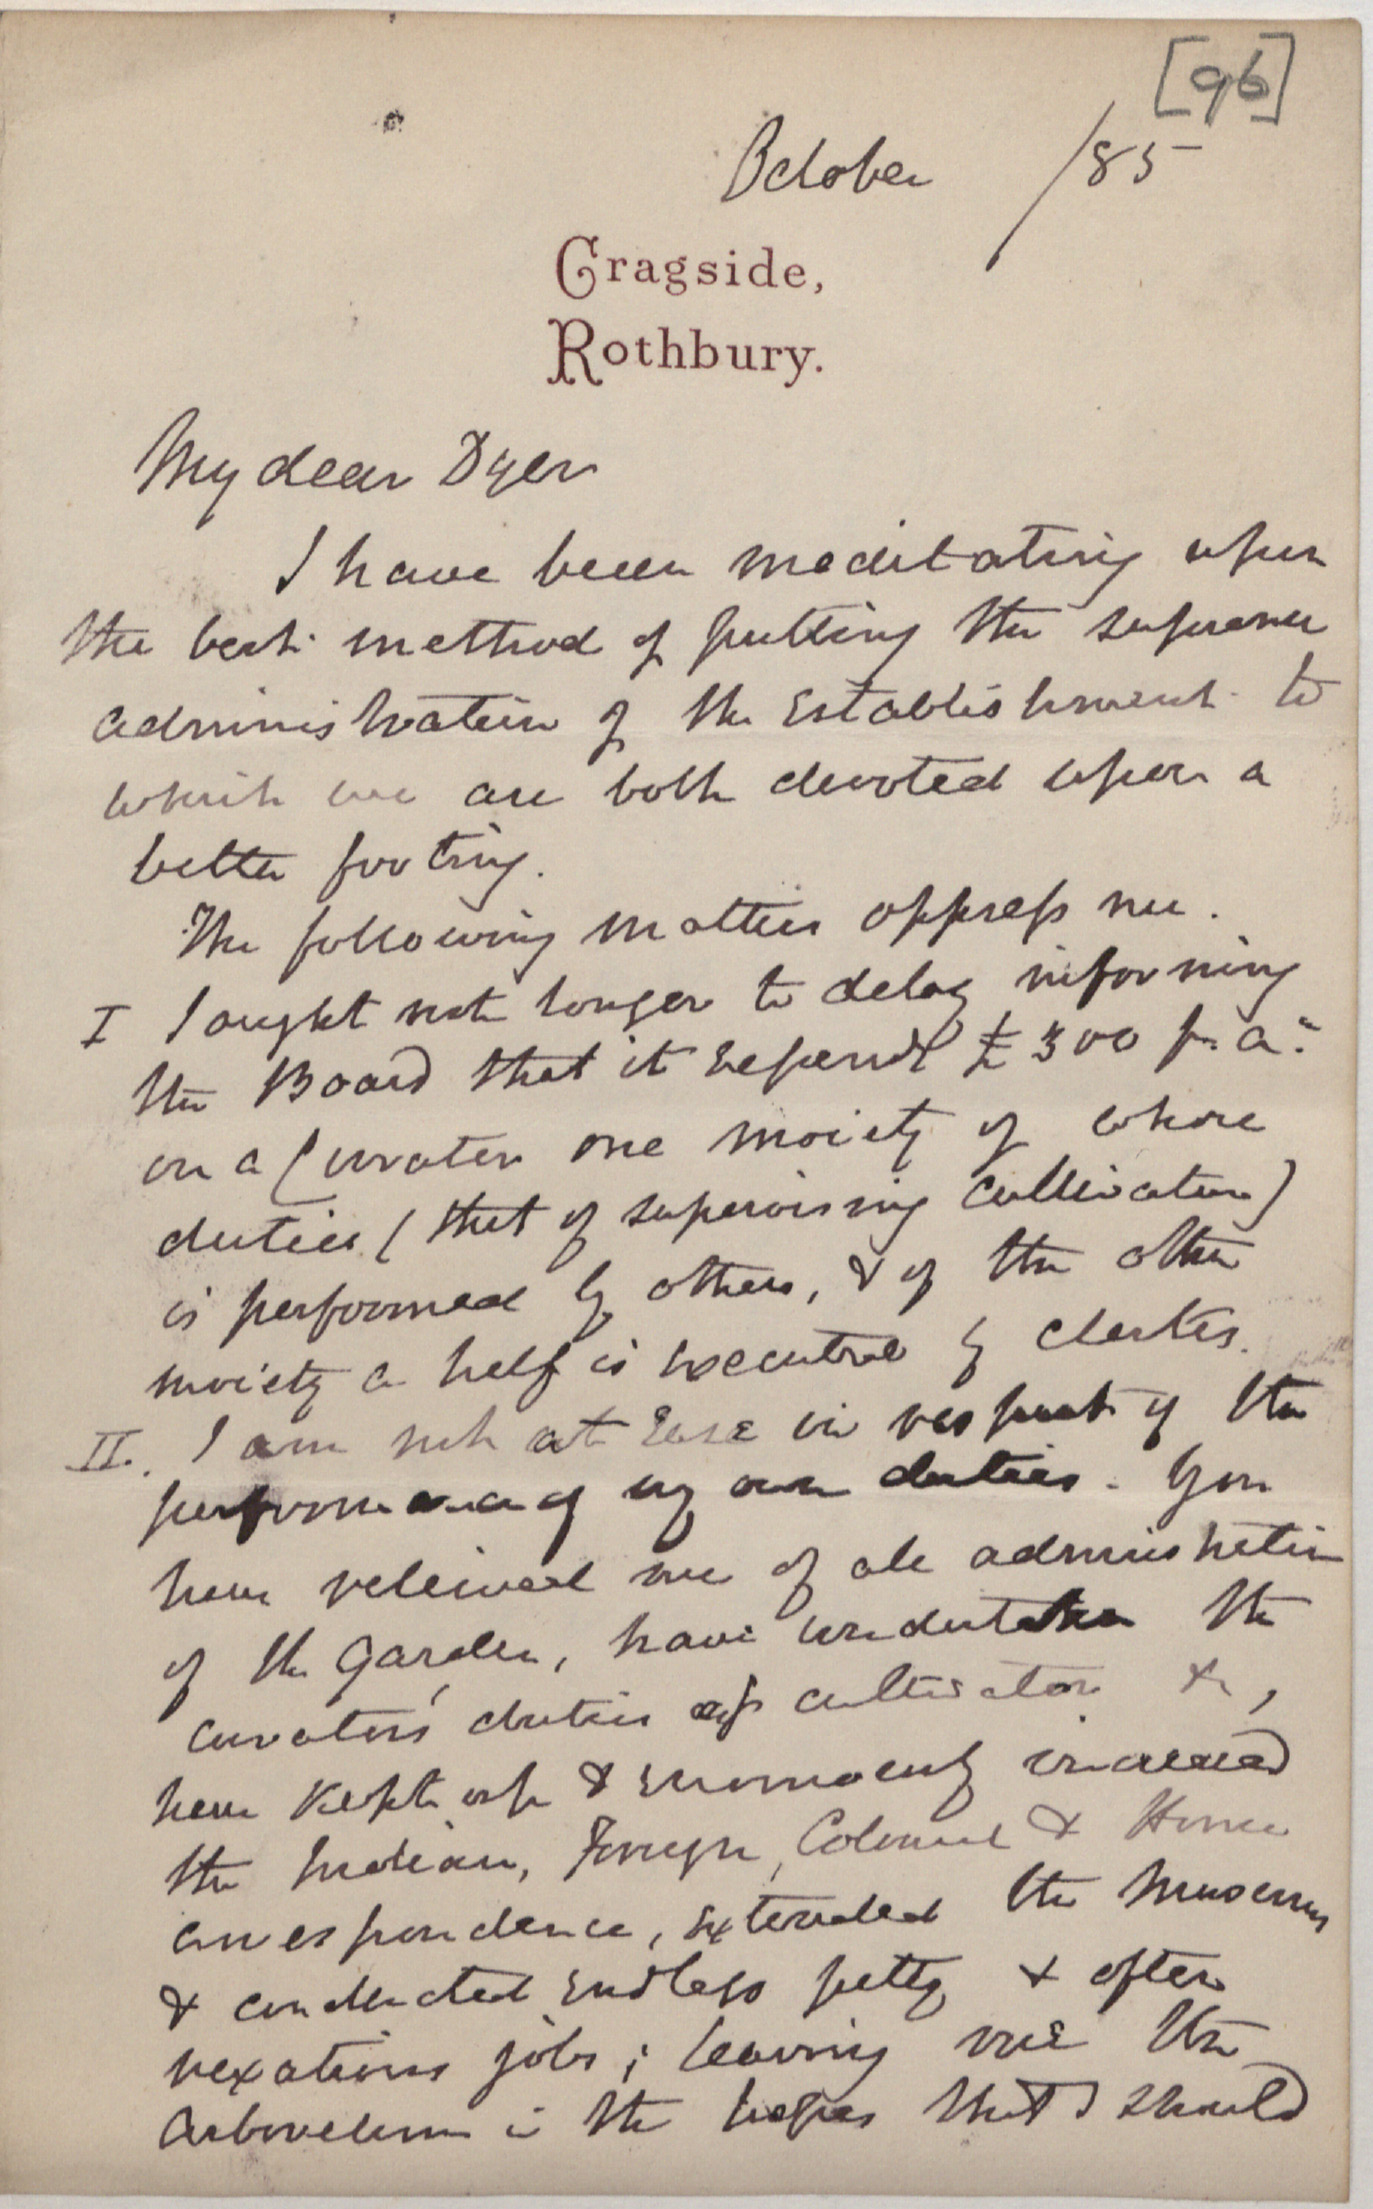 [96]
October /85
Cragside,
Rothbury.
My dear Dyer
I have been meditating upon
the best method of putting the supreme
administration of the Establishment to
which we are both devoted upon a
better footing.
The following matters oppress me.
I I ought not longer to delay informing
the Board that it expends £300 p. a.
on a Curator one moiety of whose
duties (that of supervising cultivation)
is performed by others, & of the other
moiety a half is executed by clerks.
II. I am not at ease in respect of the
performance of my own duties. You
have releived me of all administration
of the Garden, have undertaken the
Curators' duties as cultivator &c,
have kept up & enormously increased
the Indian, Foreign, Colonial & Home
correspondence, extended the Museums
& conducted endless petty & often
vexatious jobs; leaving me the
Arboretum in the hopes that I should